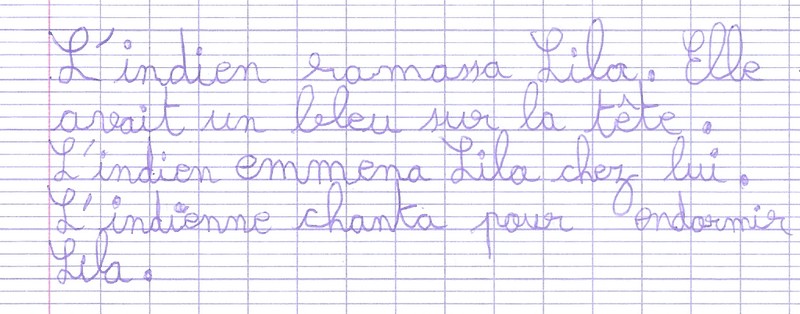 L'indien ramassa Lila. Elle
avait un bleu sur la tête.
L'indien emmena Lila chez lui.
L'indienne chanta pour endormir
Lila.